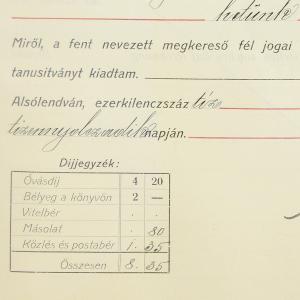 hetünk
Miről, a fent nevezett megkereső fél jogai
tanusitványt kiadtam.
Alsólendván, ezerkilenczszáz tíz
tizennyolczadik napján.
Dijjegyzék:
Óvásdij 4 20
Bélyeg a könyvön 2 —
Vitelbér . .
Másolat . 80
Közlés és postabér 1. 35
Összesen 8. 35